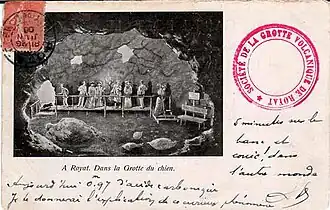 SOCIÉTÉ DE LA GROTTE VOLCANIQUE DE ROYAT
A Royat. Dans la Grotte du chien.
5 minutes sur le
banc et
couic, dans
l'autre monde
Aujourd'hui 0.97 d'acide carbonique
Je donnerai l'explication de ce curieux phénomène